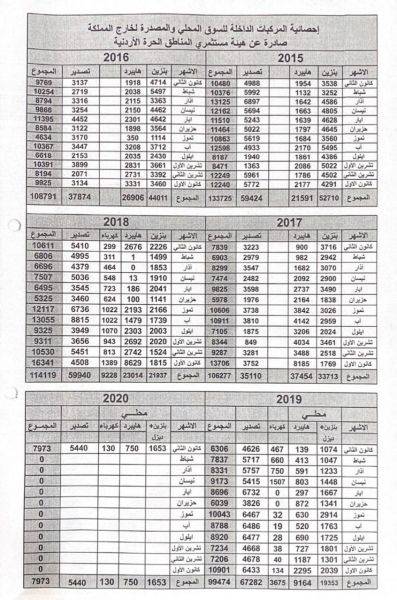 إحصائية المركبات الداخلة للسوق المحلي والمصدرة لخارج المملكة
صادرة عن هيئة مستثمري المناطق الحرة الأردنية
2015
الاشهر بنزين هايبرد تصدير المجموع
كانون الثاني 3538 1954 4988 10480
شباط 4992 10376
اذار 4586 1642 6897 13125
نيسان 4805 1663 5694 12162
ايار 4628 2239 4643 11510
حزيران 4645 1797 5022 11464
تموز 3560 1684 5619 10863
اب 5495 2170 4933 12598
ايلول 4386 1861 1940 8187
تشرين الاول 5022 2086 1363 8471
تشرين الثاني 4502 1786 5961 12249
كانون الاول 4291 2177 5772 12240
المجموع 52710 21591 59424 133725
2016
الاشهر بنزين هايبرد تصدير المجموع
كانون الثاني 4714 1918 3137 9769
شباط 5497 2038 2719 10254
اذار 3363 2115 3316 8794
نيسان 4462 2150 3254 9866
ايار 4642 2301 4452 11395
حزيران 3564 1898 3122 8584
تموز 3170 350 114 4634
اب 3712 3208 3447 10367
ايلول 2430 2035 2153 6618
تشرين الاول 3661 2831 3899 10391
تشرين الثاني 3392 2731 2071 8194
كانون الاول 3460 3331 3134 9925
المجموع 44011 26906 37874 108791
2017
الاشهر بنزين هايبرد تصدير المجموع
كانون الثاني 3716 900 3223 7839
شباط 2942 982 2979 6903
اذار 3070 1682 3547 8299
نيسان 2900 2092 2482 7474
ايار 3490 2737 3598 9825
حزيران 1838 2164 1976 5978
تموز 3026 3842 3738 10606
اب 4142 2959 3810 10911
ايلول 3024 2206 1875 7105
تشرين الاول 3461 4034 849 8344
تشرين الثاني 2518 3488 3281 9287
كانون الاول 1769 8185 3752 13706
المجموع 33713 37454 35110 106277
2018
الاشهر بنزين هايبرد كهرباء تصدير المجموع
كانون الثاني 2226 2676 299 5410 10611
شباط 1499 1 311 4995 6806
اذار 1853 0 464 4379 6696
نيسان 1910 13 548 5036 7507
ايار 2041 186 723 3545 6495
حزيران 1141 100 624 3460 5325
تموز 2166 2193 1022 6736 12117
اب 1739 1479 1022 8815 13055
ايلول 2003 2303 1070 3949 9325
تشرين الاول 2020 2692 943 3656 9311
تشرين الثاني 1524 2742 813 5451 10530
كانون الاول 1815 8629 1389 4508 16341
المجموع 21937 23014 9228 59940 114119
2019
محلـــي
الاشهر بنزين+ ديزل هايبرد كهرباء تصدير المجموع
كانون الثاني 1074 139 467 4626 6306
شباط 1047 413 660 5717 7837
اذار 750 591 1233 5757 8331
نيسان 1448 803 1507 5415 9173
ايار 1667 297 0 6732 8696
حزيران 1341 872 0 3826 6039
تموز 2914 630 32 6467 10043
اب 1763 520 19 6486 8788
ايلول 1725 690 28 6477 8920
تشرين الاول 1801 727 38 4668 7234
تشرين الثاني 1301 1187 40 4678 7206
كانون الاول 2039 2295 134 6433 10901
المجموع 19353 9164 3675 67282 99474
2020
محلـــي
الاشهر بنزين+ ديزل هايبرد كهرباء تصدير المجموع
كانون الثاني 1653 750 130 5440 7973
شباط 0
اذار 0
نيسان 0
ايار 0
حزيران 0
تموز 0
اب 0
ايلول 0
تشرين الاول 0
تشرين الثاني 0
كانون الاول 0
المجموع 1653 750 130 5440 7973